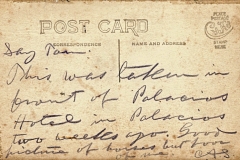 POST CARD
CORRESPONDENCE
NAME AND ADDRESS
PLACE
POSTAGE
STAMP
HERE
Say Pam:
This was taken in
front of Palacios
Hotel in Palacios
two weeks ago. Good
picture of horses but poor